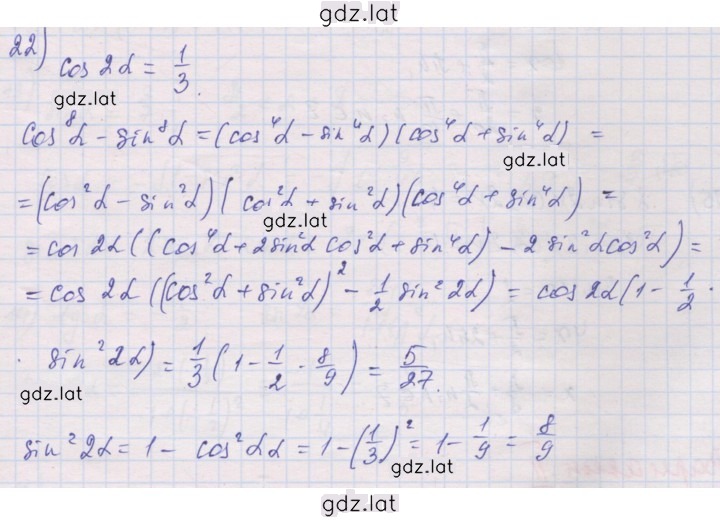 gdz.lat
22) cos 2α = 1/3.
gdz.lat
cos⁸α - sin⁸α = (cos⁴α - sin⁴α)(cos⁴α + sin⁴α) =
gdz.lat
= (cos²α - sin²α)(cos²α + sin²α)(cos⁴α + sin⁴α) =
gdz.lat
= cos 2α((cos⁴α + 2sin²α cos²α + sin⁴α) - 2 sin²α cos²α) =
= cos 2α((cos²α + sin²α)² - 1/2 sin² 2α) = cos 2α(1 - 1/2 ·
· sin² 2α) = 1/3 (1 - 1/2 · 8/9) = 5/27.
gdz.lat
sin² 2α = 1 - cos² 2α = 1 - (1/3)² = 1 - 1/9 = 8/9
gdz.lat
gdz.lat